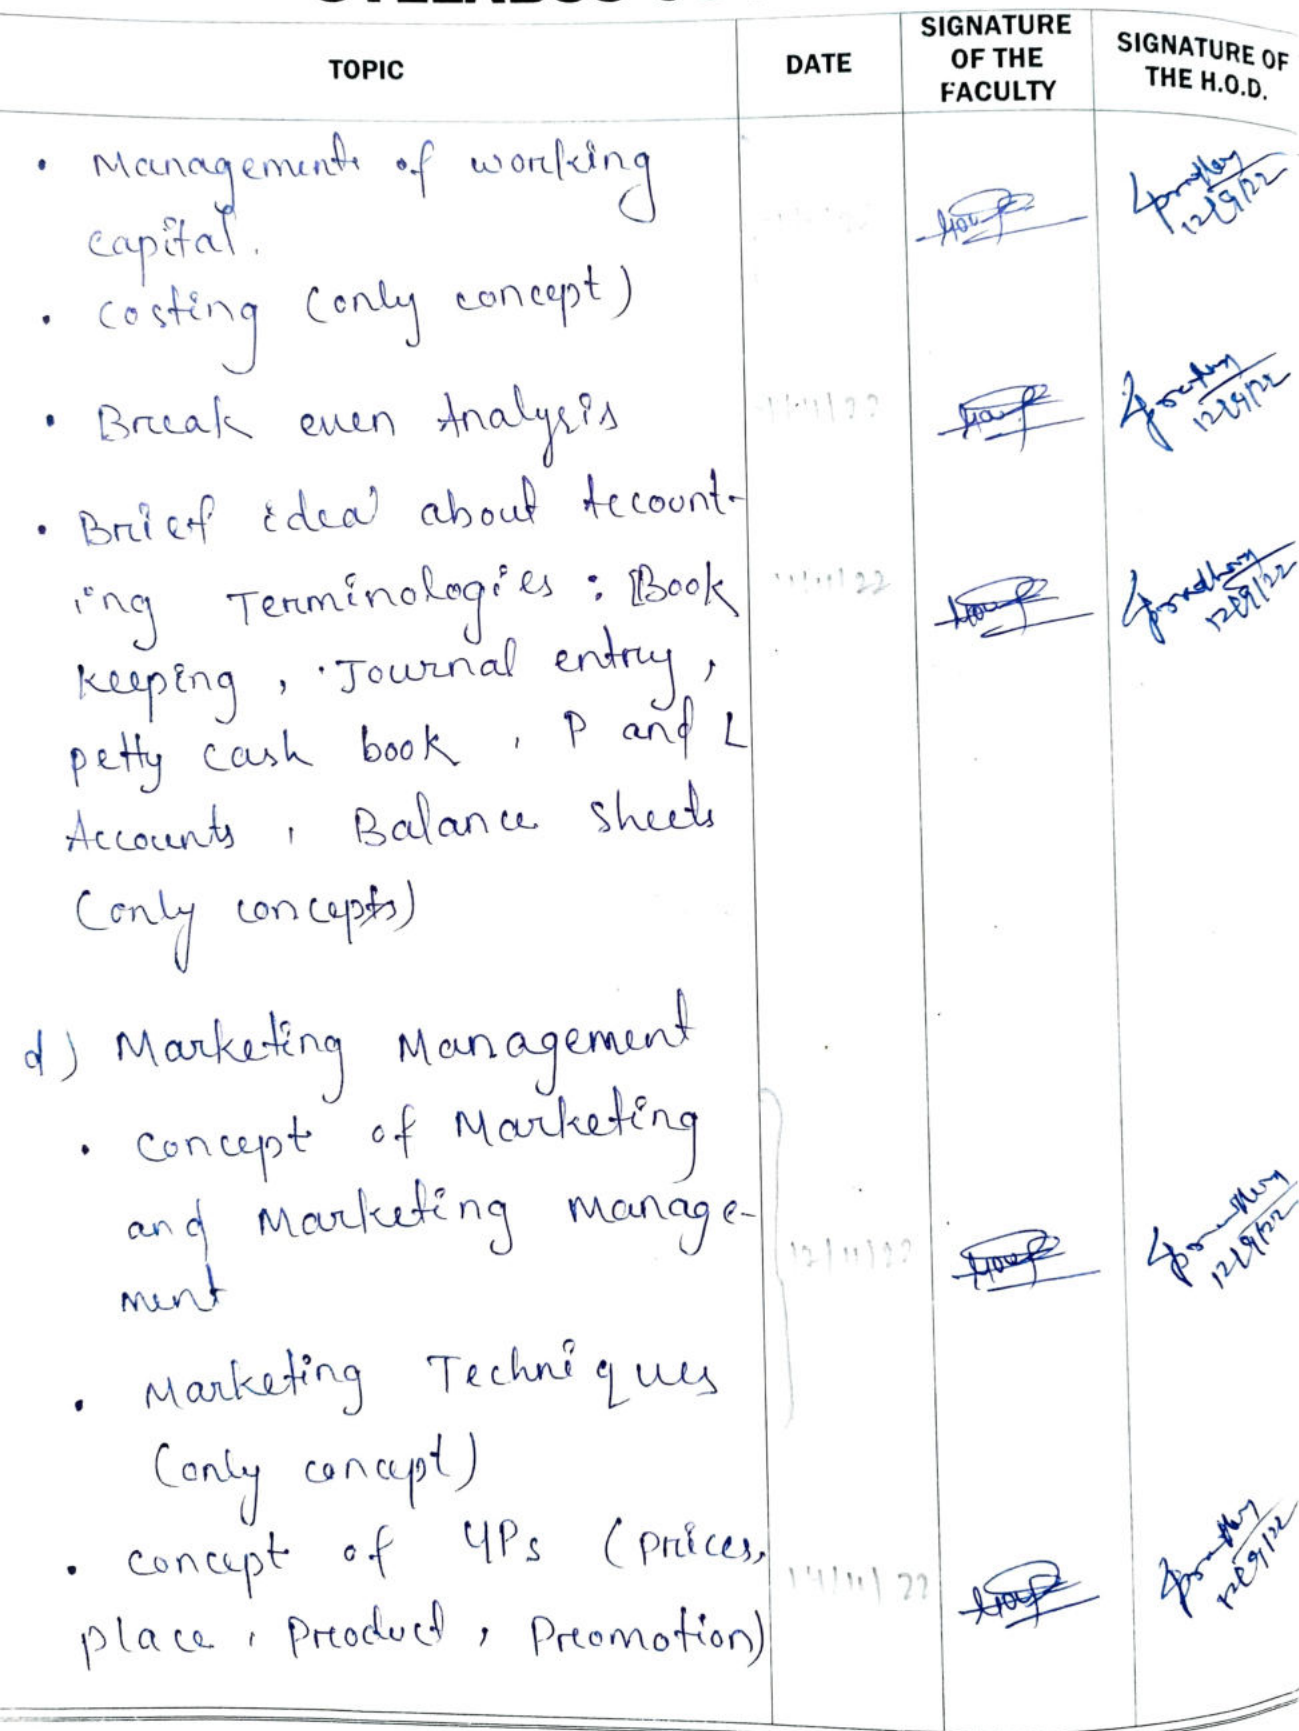 TOPIC
DATE
SIGNATURE
OF THE
FACULTY
SIGNATURE OF
THE H.O.D.
• Management of working
capital.
12/9/22
• Costing (only concept)
• Break even Analysis
/11/22
12/9/22
• Brief idea about Account-
ing Terminologies : Book
/11/22
12/9/22
Keeping , Journal entry ,
petty cash book , P and L
Accounts , Balance Sheets
(only concepts)
d) Marketing Management
• Concept of Marketing
and Marketing Manage-
12/11/22
12/9/22
ment
• Marketing Techniques
(only concept)
• Concept of 4Ps (Prices,
14/11/22
12/9/22
place , Product , Promotion)